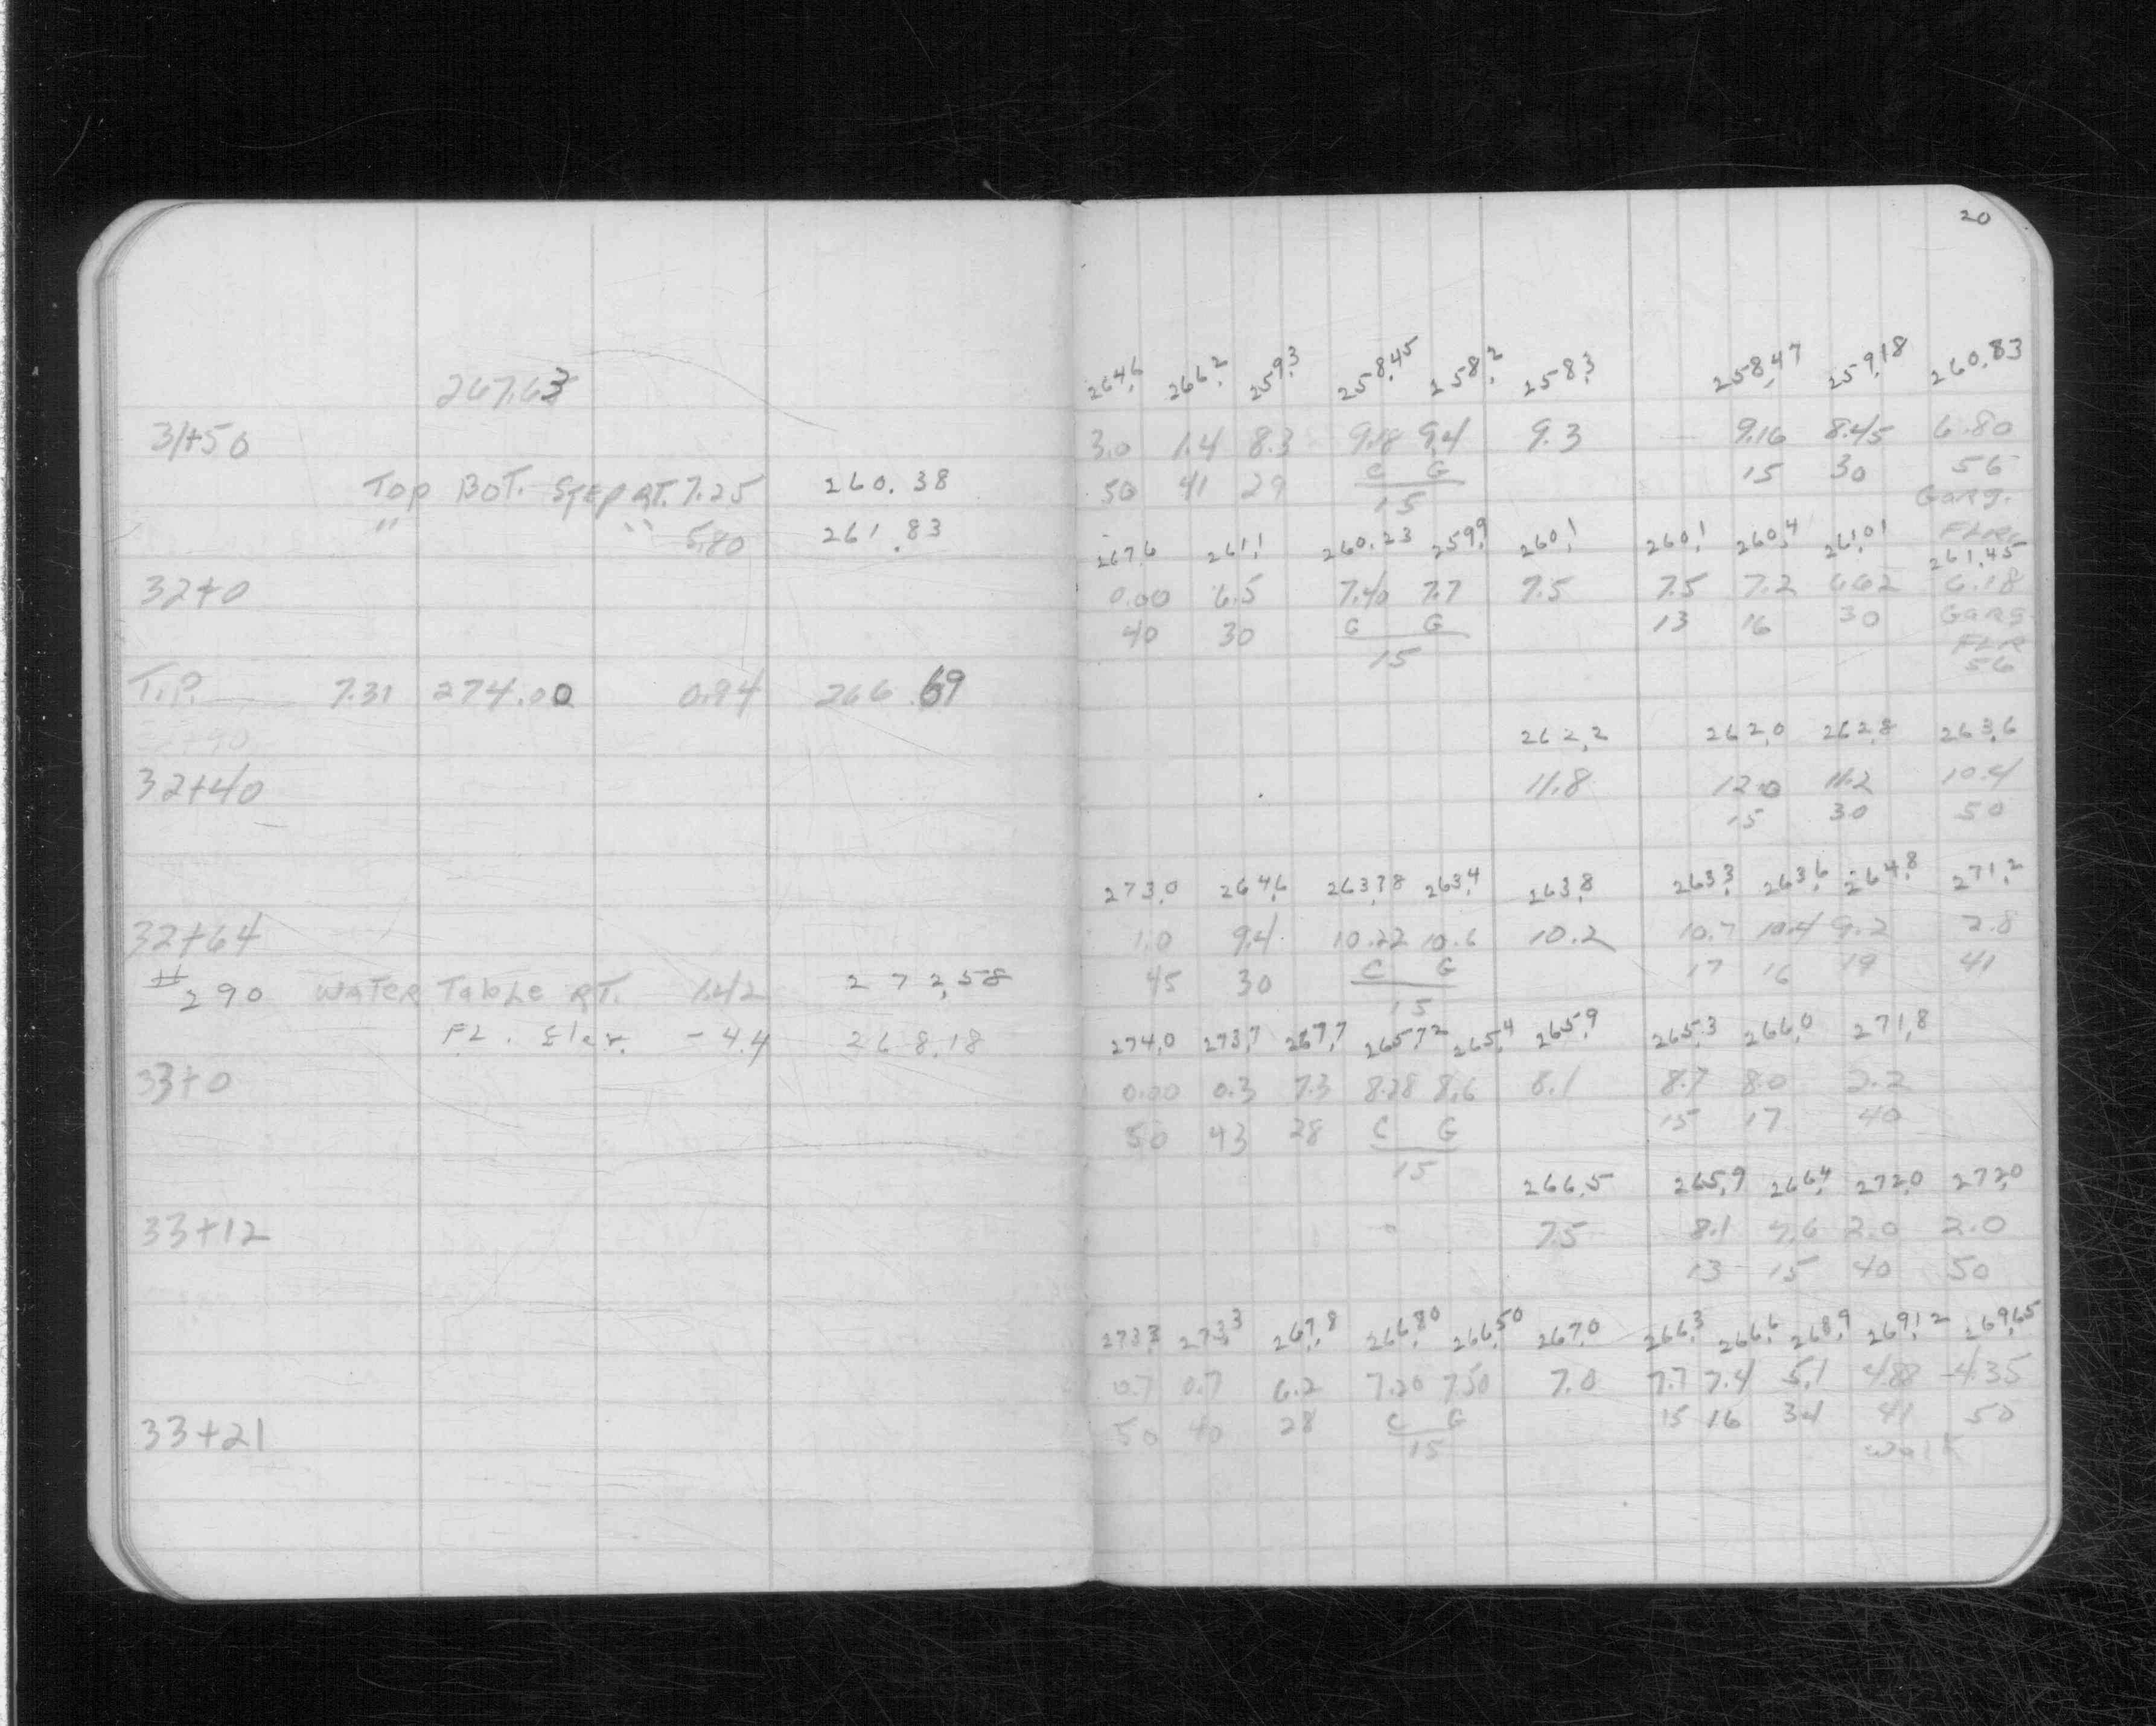 20
267.63
264.6 266.2 259.3 258.45 258.2 258.3 258.47 259.18 260.83
31+50 3.0 1.4 8.3 9.18 9.4 9.3 9.16 8.45 6.80
Top BOT. STEP RT. 7.25 260.38 50 41 29 C G 15 30 56
15 Garg.
" " 5.80 261.83 FLR
267.6 261.1 260.23 259.9 260.1 260.1 260.4 261.01 261.45
32+0 0.00 6.5 7.40 7.7 7.5 7.5 7.2 6.62 6.18
40 30 C G 13 16 30 Garg.
15 FLR
56
T.P. 7.31 274.00 0.94 266.69
262.2 262.0 262.8 263.6
32+40 11.8 12.0 11.2 10.4
15 30 50
273.0 264.6 263.78 263.4 263.8 263.3 263.6 264.8 271.2
32+64 1.0 9.4 10.22 10.6 10.2 10.7 10.4 9.2 2.8
#290 Water Table RT. 1.42 272.58 45 30 C G 17 16 19 41
15
FL. Elev. - 4.4 268.18 274.0 273.7 267.7 265.72 265.4 265.9 265.3 266.0 271.8
33+0 0.00 0.3 7.3 8.28 8.6 8.1 8.7 8.0 2.2
50 43 28 C G 15 17 40
15
266.5 265.9 266.4 272.0 272.0
33+12 7.5 8.1 7.6 2.0 2.0
13 15 40 50
273.3 273.3 267.8 266.80 266.50 267.0 266.3 266.6 268.9 269.12 269.65
0.7 0.7 6.2 7.20 7.50 7.0 7.7 7.4 5.1 4.88 4.35
33+21 50 40 28 C G 15 16 34 41 50
15 Walk